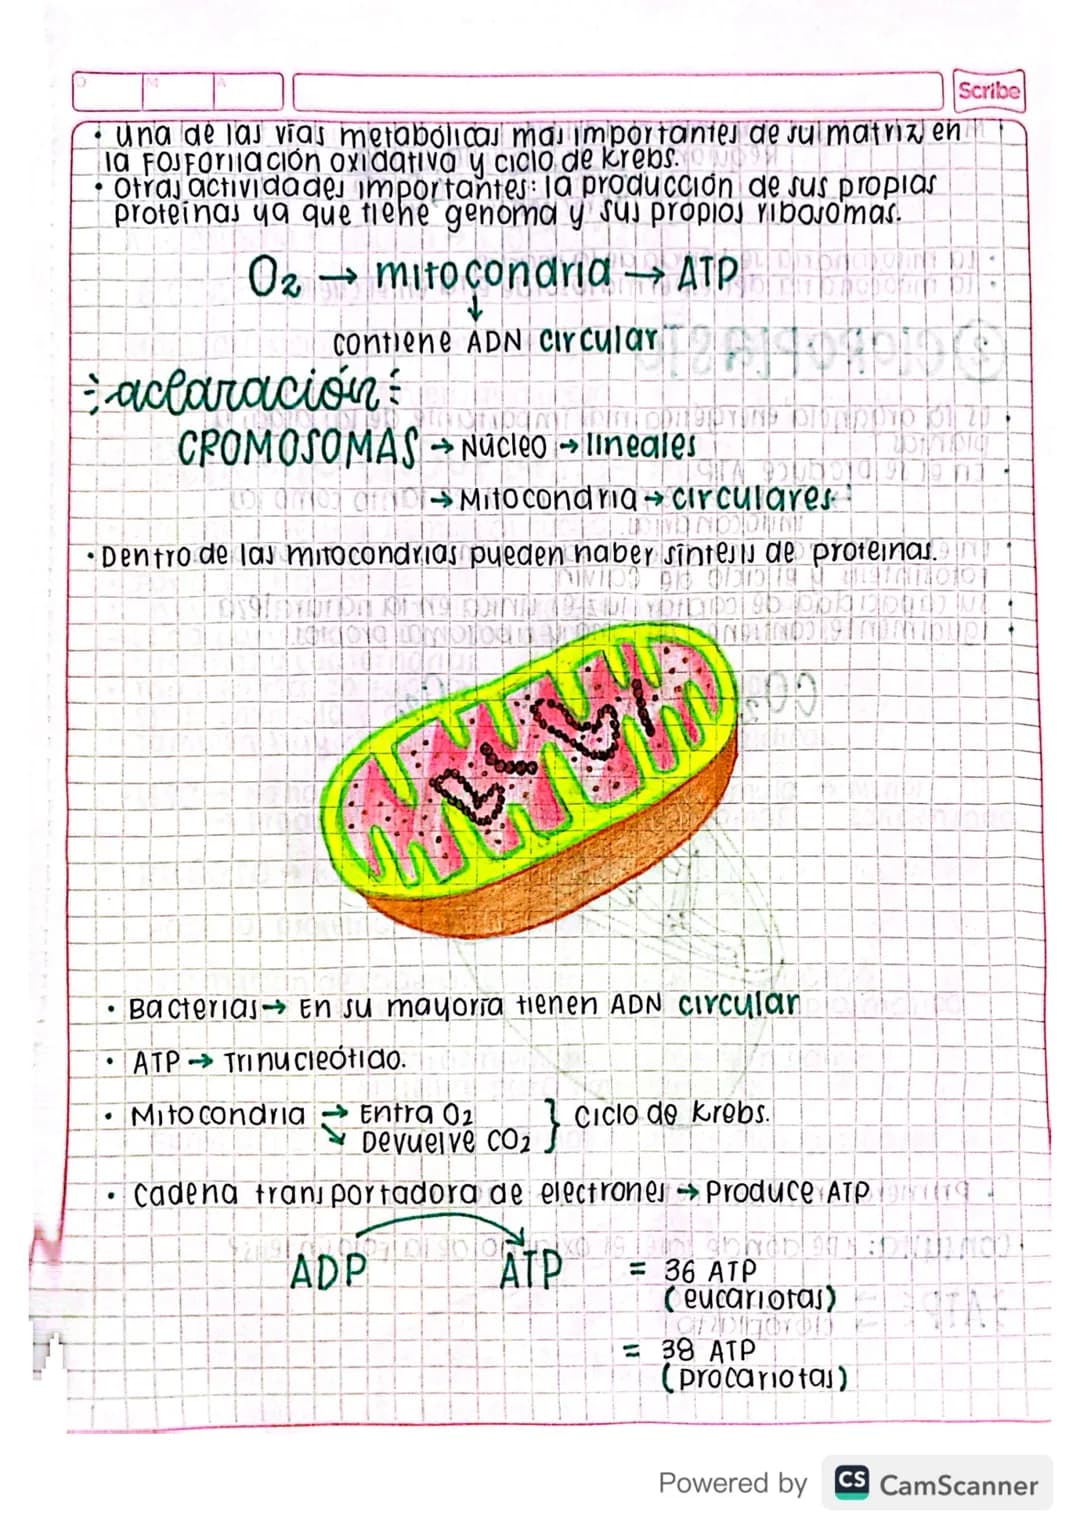 Scribe
• una de las vías metabólicas mas importantes de su matriz en
la FOSFORILACIÓN OXIDATIVA y ciclo de krebs.
• Otras actividades importantes: la producción de sus propias
proteínas ya que tiene genoma y sus propios ribosomas.
O₂ → mitocondria → ATP
↓
contiene ADN circular
aclaración:
CROMOSOMAS → Núcleo → lineales
→ Mitocondria → circulares
• Dentro de las mitocondrias pueden haber síntesis de proteinas.
• Bacterias → En su mayoría tienen ADN circular
• ATP → Trinucleótido.
• Mitocondria → Entra O₂ } ciclo de krebs.
↘ Devuelve CO₂
• cadena transportadora de electrones → Produce ATP
ADP ATP = 36 ATP
(eucariotas)
= 38 ATP
(procariotas)
Powered by CS CamScanner